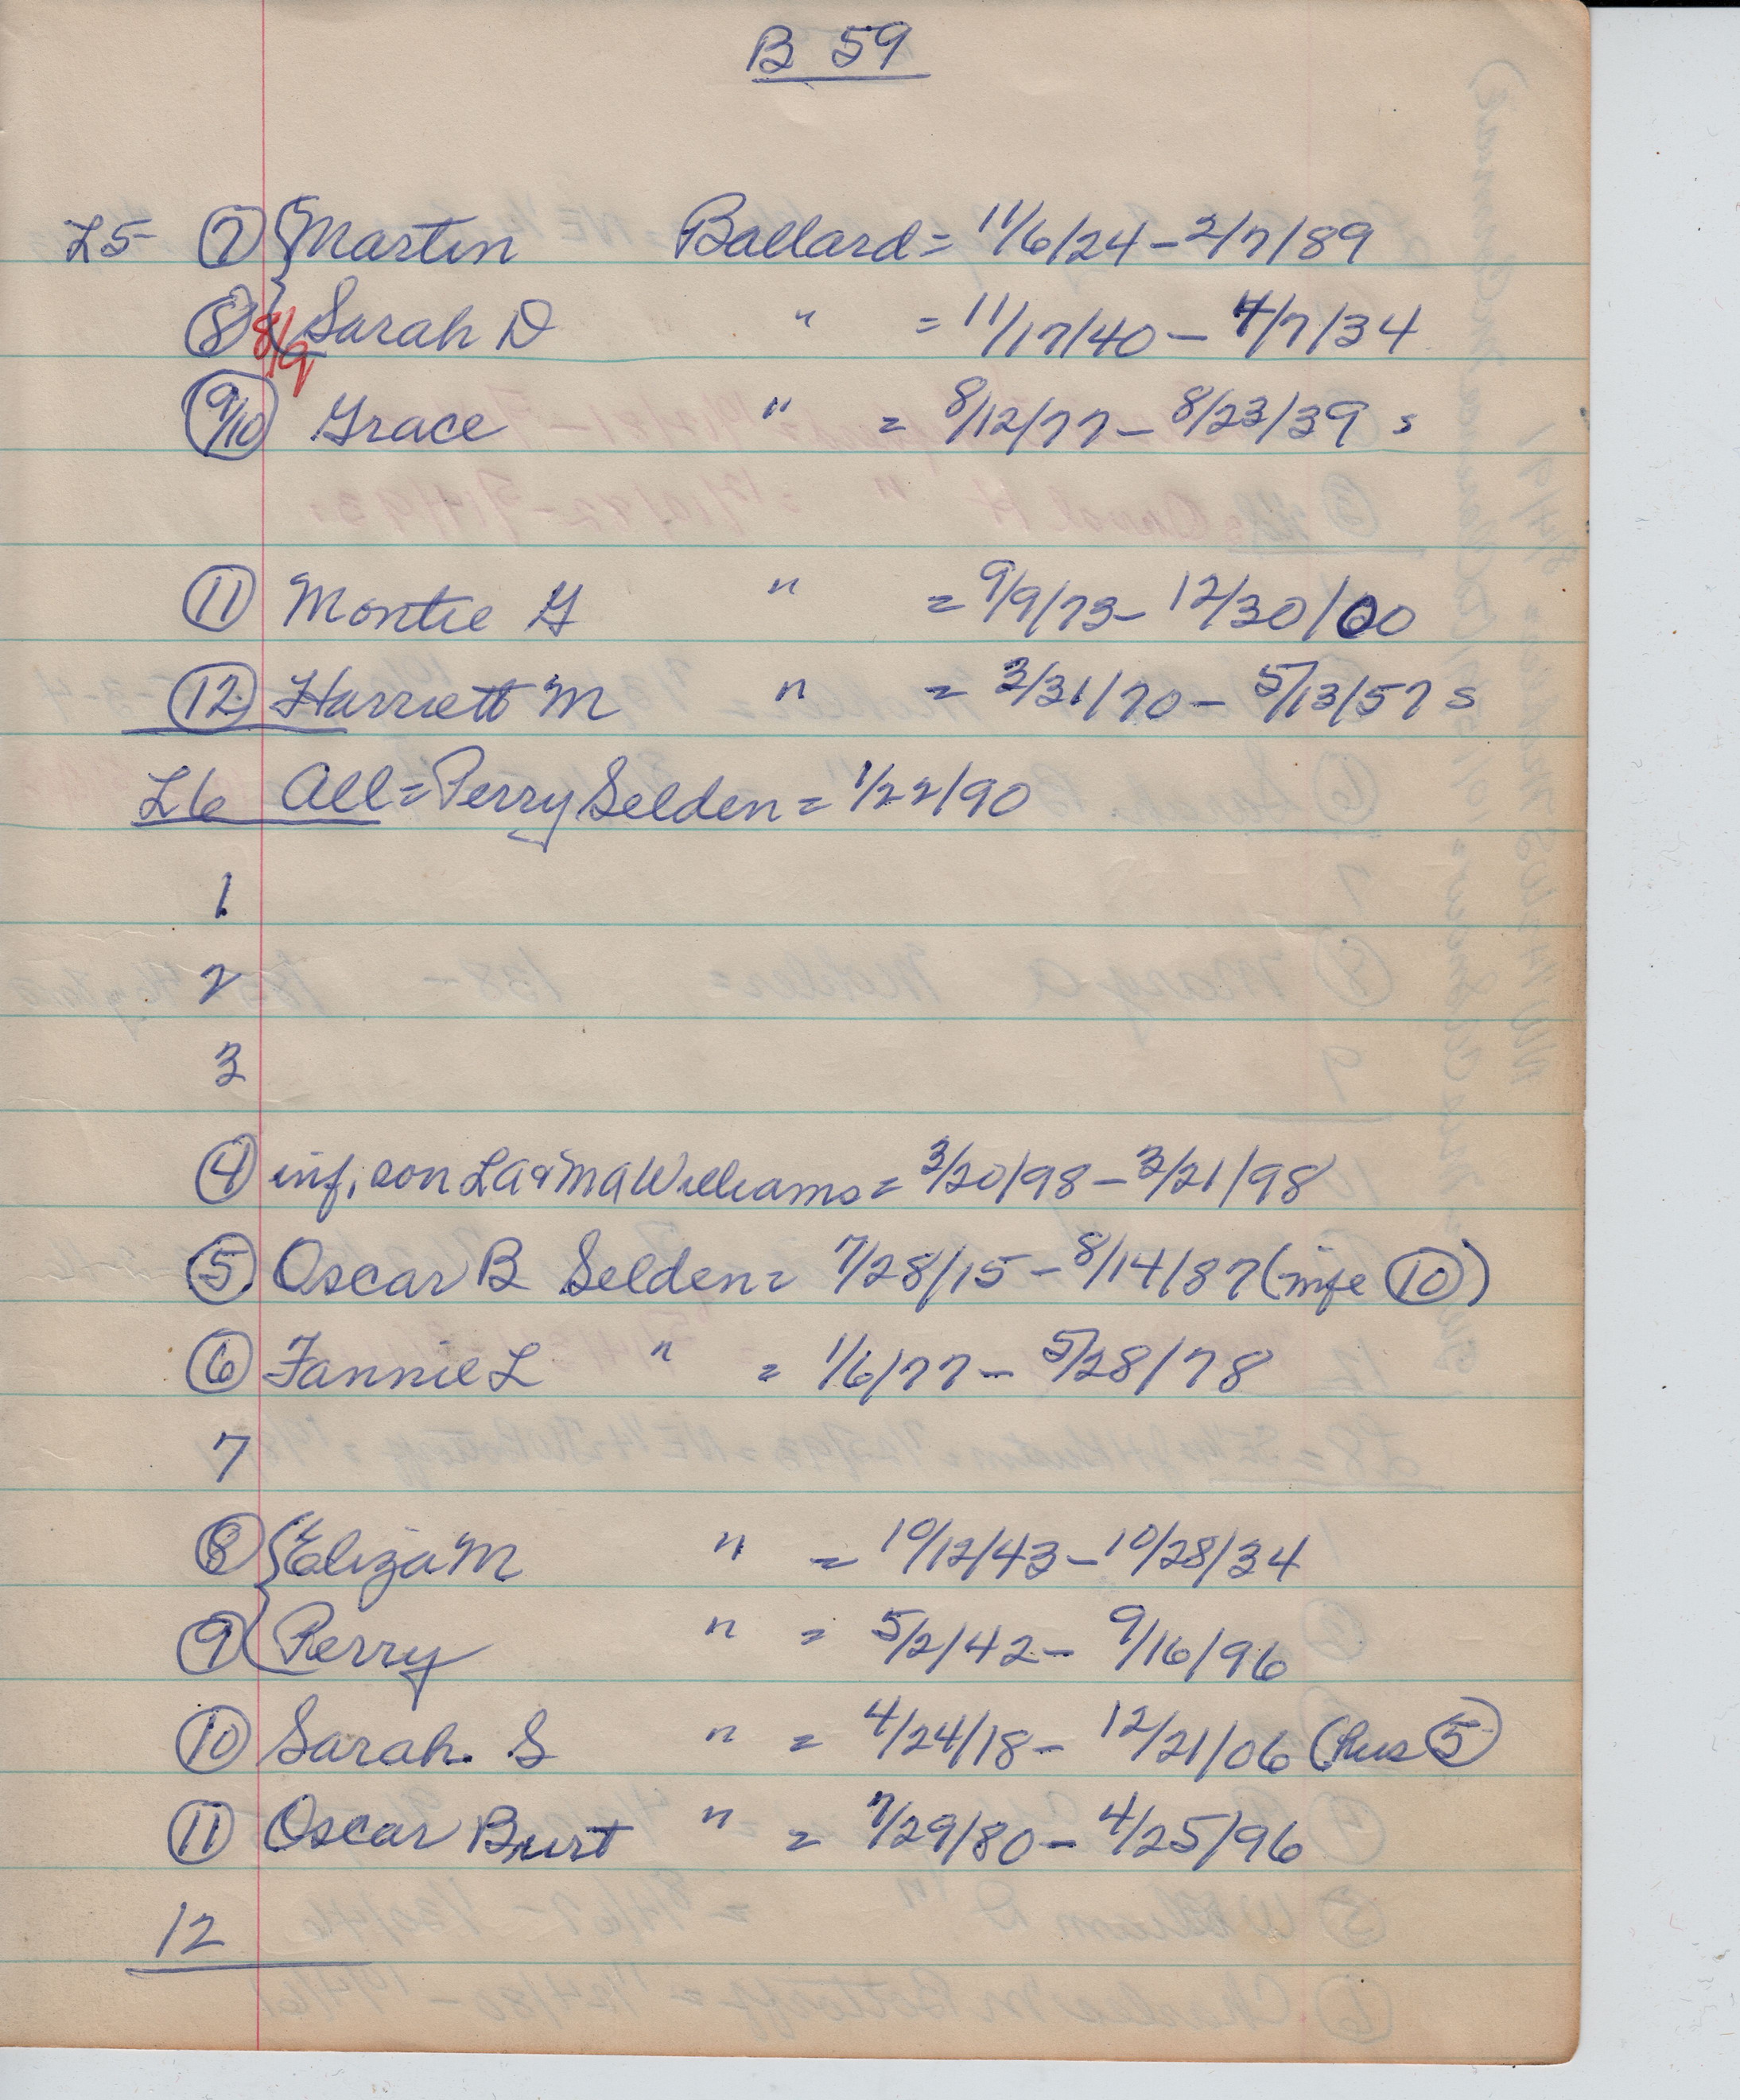 B 59
L5 7 { Martin Ballard = 11/6/24 - 2/7/89
8 8/9 Sarah D " = 11/17/40 - 4/7/34
9/10 Grace " = 8/12/77 - 8/23/39 s
11 Montie G " = 9/9/73 - 12/30/00
12 Harriett M " = 3/31/70 - 5/13/57 s
L6 All = Perry Selden = 1/22/90
1
2
3
4 inf. son LA & MA Williams = 3/20/98 - 3/21/98
5 Oscar B Selden = 7/28/15 - 8/14/87 (wife 10)
6 Fannie L " = 1/6/77 - 5/28/78
7
8 { Eliza M " = 10/12/43 - 10/28/34
9 Perry " = 5/2/42 - 9/16/96
10 Sarah. S " = 4/24/18 - 12/21/06 (hus 5)
11 Oscar Burt " = 7/29/80 - 4/25/96
12